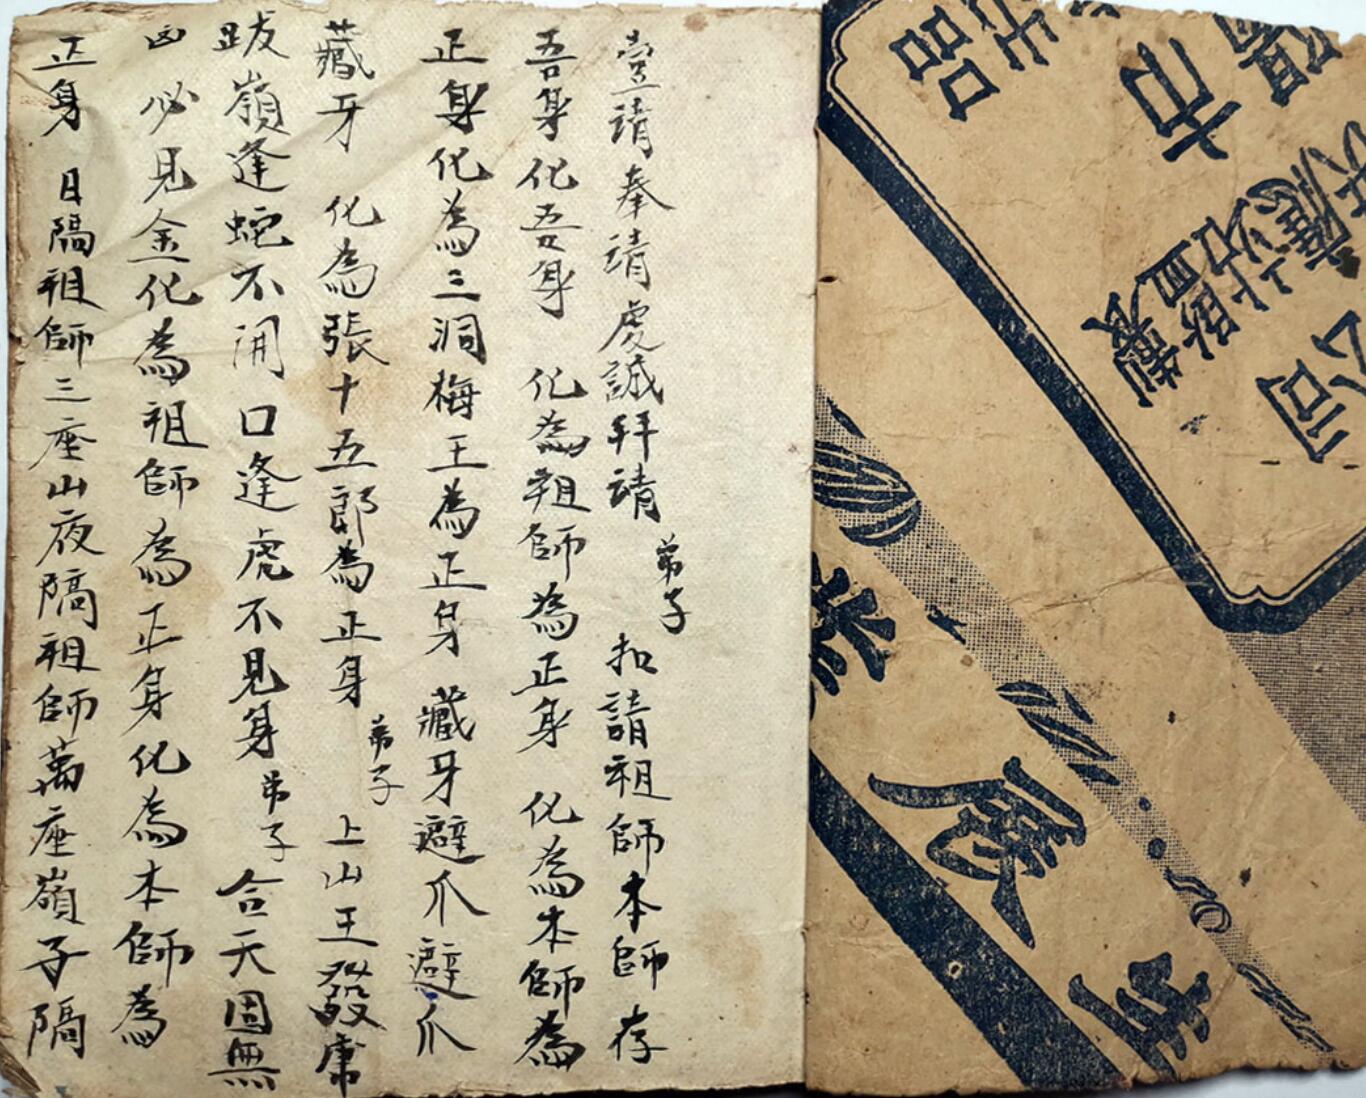 壹請奉請虔誠拜請弟子扣請祖師本師存
吾身化吾身化為祖師為正身化為本師為
正身化為三洞梅王為正身藏牙避爪避爪
藏牙化為張十五郎為正身弟子上山王發庸
跋嶺逢蛇不開口逢虎不見身弟子合天固無
凶必見金化為祖師為正身化為本師為
正身日隔祖師三座山夜隔祖師萬座嶺子隔
陽市
品
公司
監製